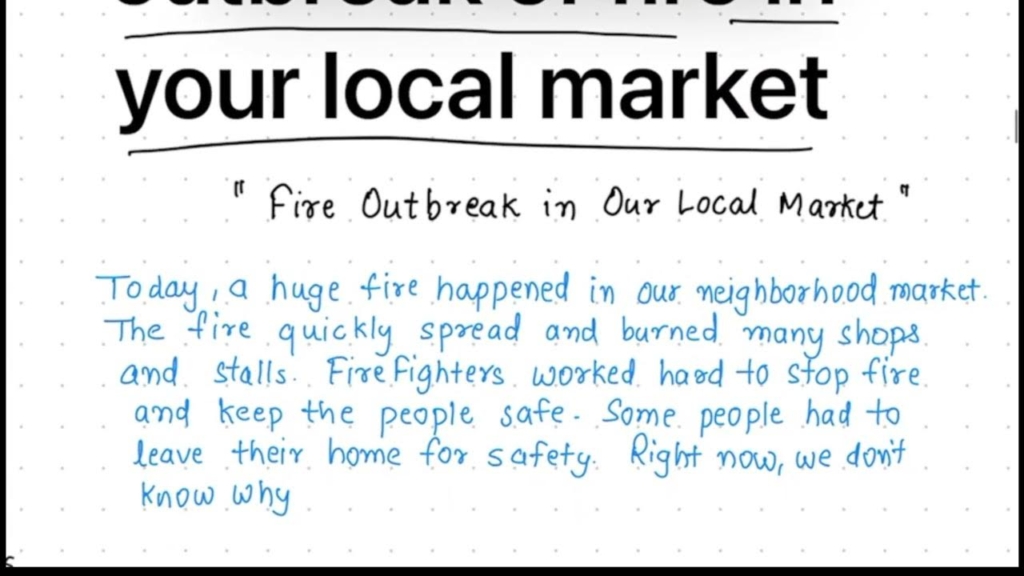 your local market
" Fire Outbreak in Our Local Market "
Today, a huge fire happened in our neighborhood market.
The fire quickly spread and burned many shops
and stalls. Fire Fighters worked hard to stop fire
and keep the people safe. Some people had to
leave their home for safety. Right now, we don't
know why